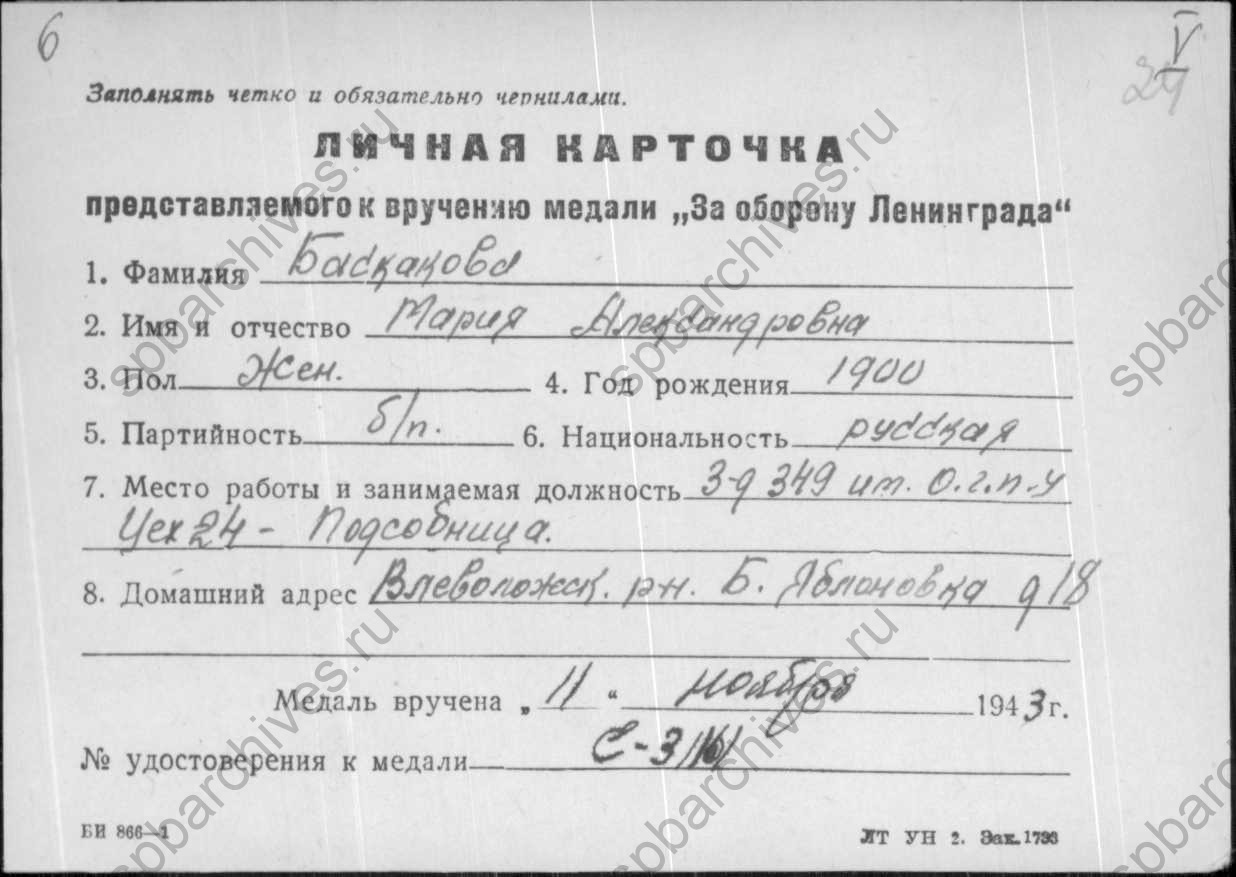 6
V
24
Заполнять четко и обязательно чернилами.
ЛИЧНАЯ КАРТОЧКА
представляемого к вручению медали „За оборону Ленинграда“
1. Фамилия Баскакова
2. Имя и отчество Мария Александровна
3. Пол Жен. 4. Год рождения 1900
5. Партийность б/п. 6. Национальность русская
7. Место работы и занимаемая должность З-д 349 им. О.г.п.у
Цех 24 - Подсобница.
8. Домашний адрес Всеволожск. рн. Б. Яблоновка д 18
Медаль вручена „ 11 “ ноября 1943 г.
№ удостоверения к медали
БИ 866—1
ЛТ УН 2. Зак. 1736
spbarchives.ru
spbarchives.ru
spbarchives.ru
spbarchives.ru